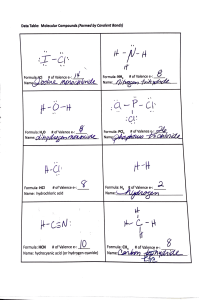 Data Table: Molecular Compounds (Formed by Covalent Bonds)
I - Cl
H - N - H
H
Formula: ICl # of Valence e-: 14
Formula: NH₃ # of Valence e-: 8
Name: Iodine monochloride
Name: Nitrogen trihydride
H - O - H
Cl - P - Cl
Cl
Formula: H₂O # of Valence e-: 8
Formula: PCl₃ # of Valence e-: 26
Name: dihydrogen monoxide
Name: phosphorus trichloride
H - Cl
H - H
Formula: HCl # of Valence e-: 8
Formula: H₂ # of Valence e-: 2
Name: hydrochloric acid
Name: hydrogen
H - C≡N
H
H - C - H
H
Formula: HCN # of Valence e-: 10
Formula: CH₄ # of Valence e-: 8
Name: hydrocyanic acid (or hydrogen cyanide)
Name: Carbon